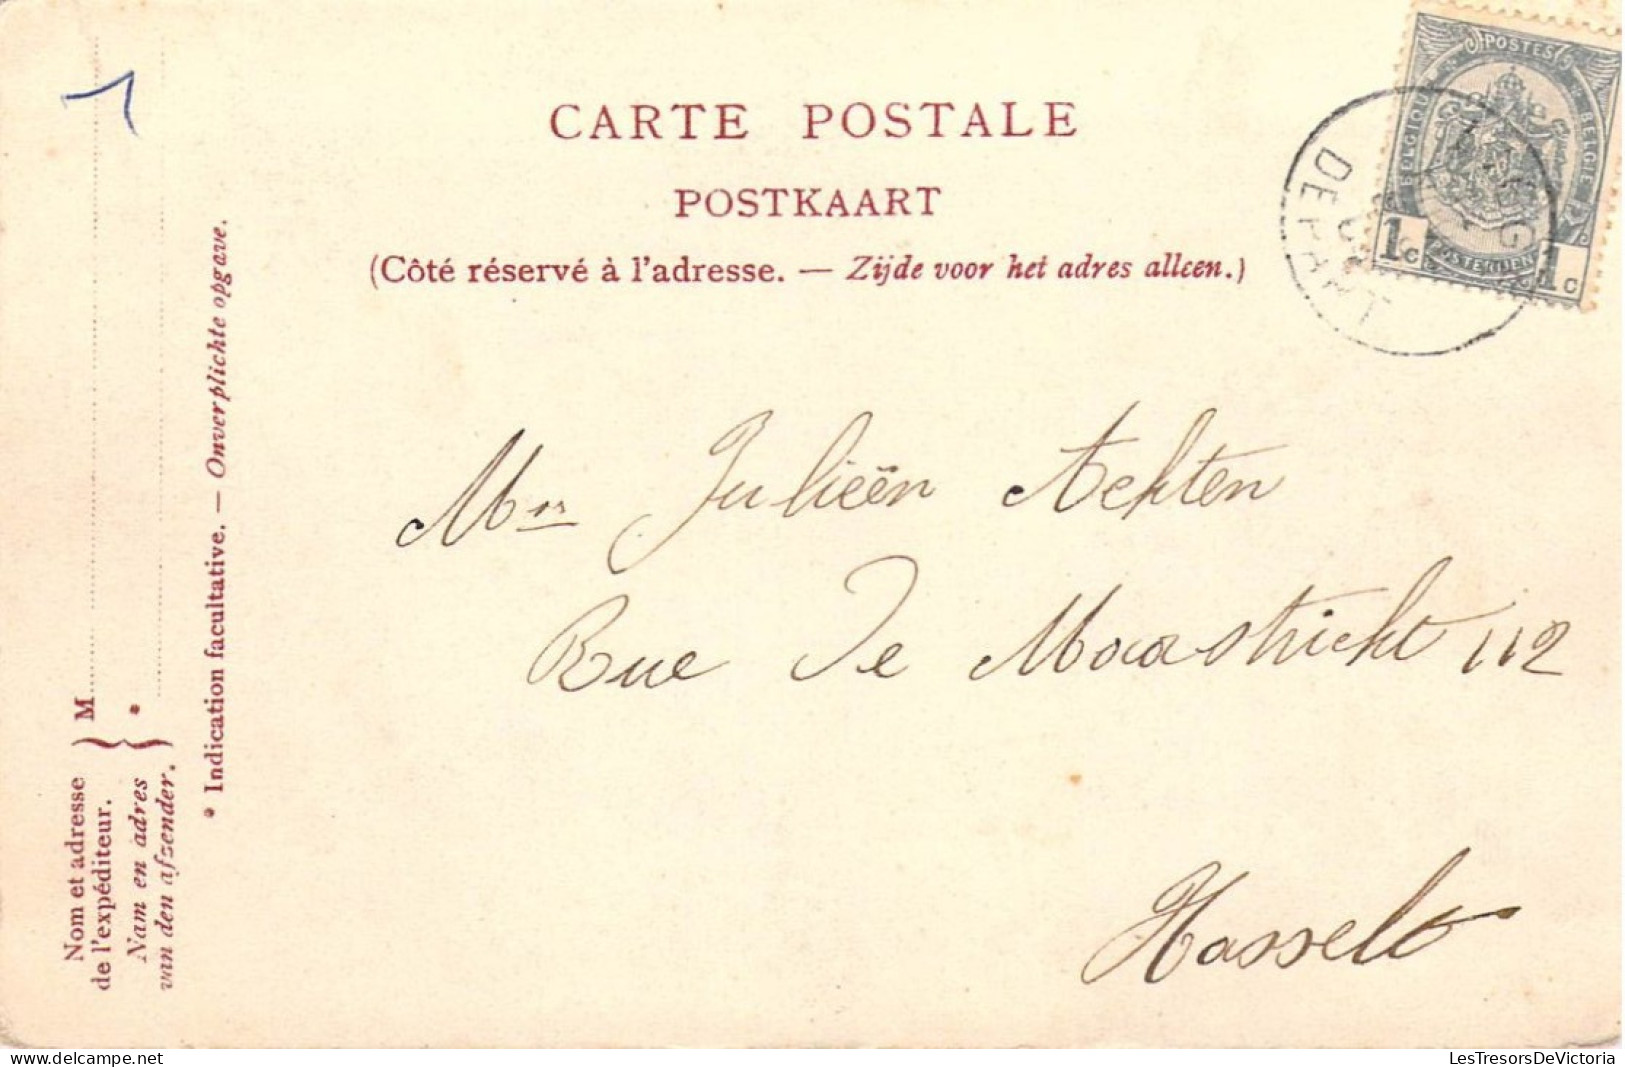 CARTE POSTALE
POSTKAART
(Côté réservé à l'adresse. — Zijde voor het adres alleen.)
POSTES
BELGIQUE
BELGIË
POSTERIJEN
1c
1c
DEPART
Mr Julieën Achten
Rue De Maastricht 112
Hasselt
Nom et adresse
de l'expéditeur.
Nam en adres
van den afzender.
M
*
* Indication facultative. — Onverplichte opgave.
LesTresorsDeVictoria